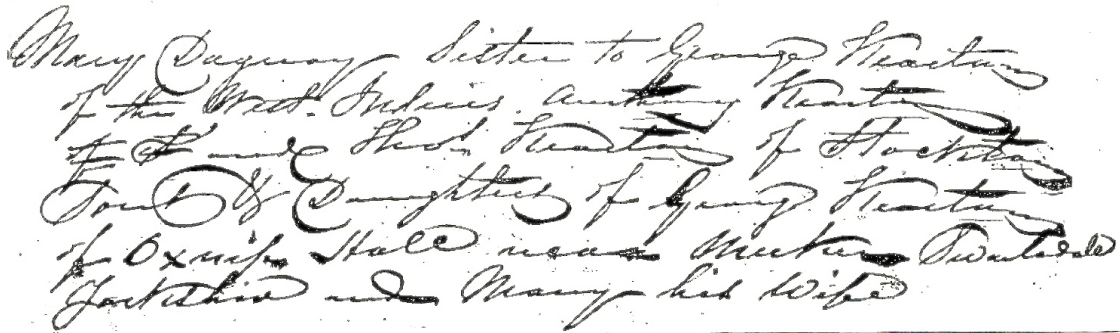 Mary Daguay Sister to George Kearton
of the West Indies. Anthony Kearton
of Do and Thos. Kearton of Stockton
Sons & Daughters of George Kearton
of Oxnip Hall near Muker Swaledale
Yorkshire and Mary his Wife